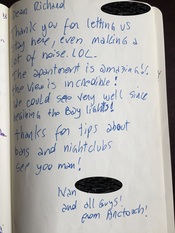 Dear Richard
Thank you for letting us
stay here, even making a
lot of noise. LOL.
The apartment is amazing!!
the view is incredible!
We could see very well since
the Bay lights!
thanks for tips about
bars and nightclubs
see you man!
Ivan
and all guys!
from